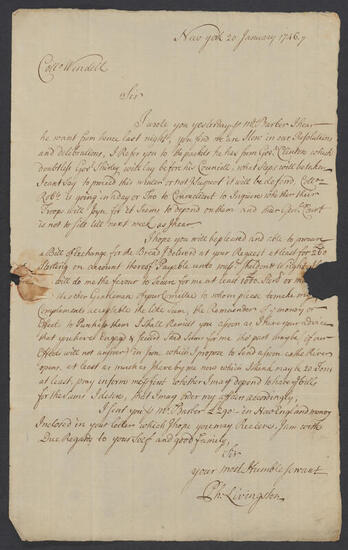 New york 20 January 1746/7
Collo Wendell
Sir
I wrote you yesterday p Mr Barber I hear
he went from hence last night, you find we are Slow in our Resolutions
and deliberations, I Refer you to the packets he has from Govr Clinton which
doubtless Govr Shirley will lay before his Councill, what Steps will be taken
I cant Say to proceed this winter or not I Suspect it will be defered, Collo
Robts is going in day or Two to Connecticut to Inquire whether their
Troops will Joyn for it Seems to depend on them and their Genl Court
is not to sitt till next week as I hear
I hope you will be pleased and able to procure
a Bill of Exchange for the Bread I delivered at your Request at least for £260
Sterling on account thereof Payable unto messrs
will do me the favour to Secure for me at least 1000 Ster or
the other Gentlemen of your Comittee to whom please to make my
Complements acceptable the like Sum, the Remainder of money or
Effect to Purchase them I shall Remitt you as soon as I have your advice
that you have Engag'd & Secured Said Sum for me the part
Effects will not answer in Som which I propose to Send as soon as the River
opens, at least as much as I have by me now which I think may be 20 Tons
at least, pray inform me whether I may depend to have of bills
for the Sums I desire, that I may order my affairs accordingly,
I sent you p Mr Barber £290 - in New England money
Inclosed in your letter which I hope you may Receive, I am with
Due Regards to your Self and good family,
Sir
your most Humble Servant
Ph: Livingston